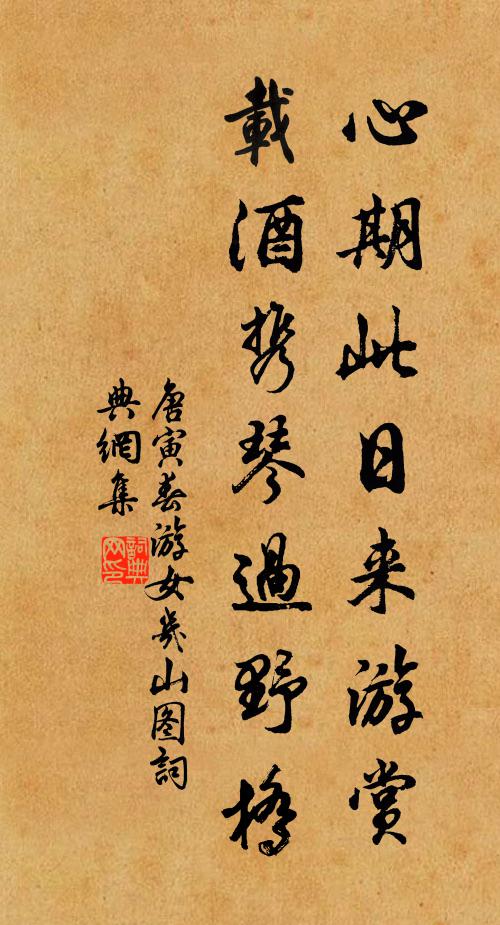 心期此日来游賞
載酒携琴過野橋
唐寅春游女几山图詞
典網集
詞典網印